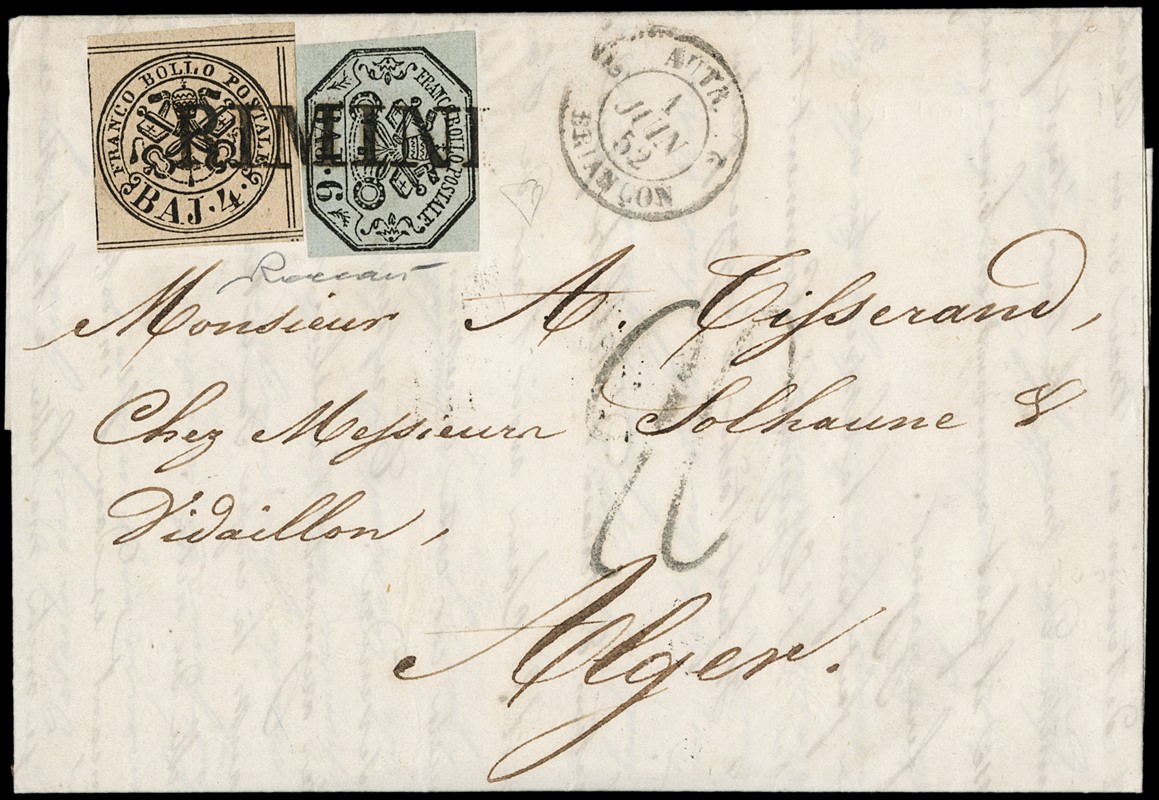 FRANCO BOLLO POSTALE
BAJ. 4
FRANCO BOLLO POSTALE
BAJ. 6
RIMINI
AUTR.
1
JUIN
52
BRIANÇON
2
Monsieur A. Tisserand,
Chez Messieurs Solhaune &
Vidaillon,
Alger.